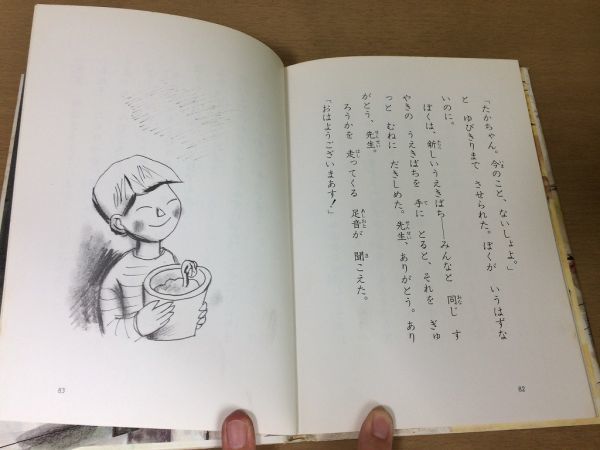 「たかちゃん。今のこと、ないしょよ。」
と ゆびきりまで させられた。ぼくが いうはずな
いのに。
ぼくは、新しいうえきばち——みんなと 同じ す
やきの うえきばちを 手に とると、それを ぎゅ
っと むねに だきしめた。先生、ありがとう。あり
がとう、先生。
ろうかを 走ってくる 足音が 聞こえた。
「おはようございまあす!」
82
83